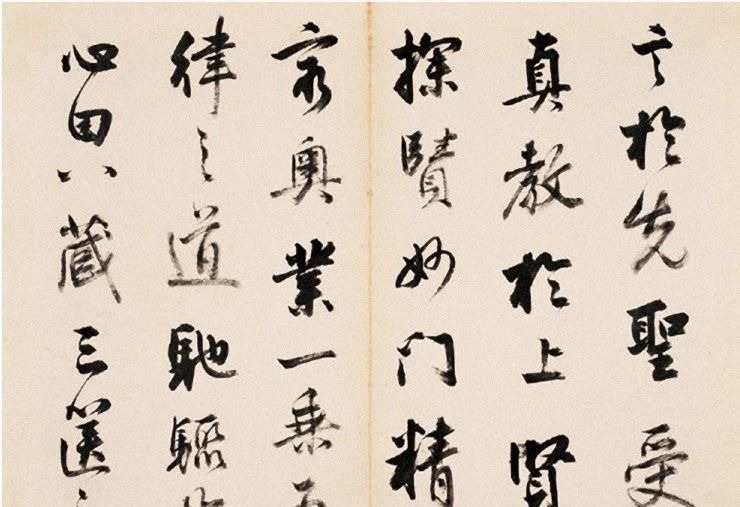 言於先聖受
真教於上賢
探賾妙門精
穷奥業一乗五
律之道馳驟於
心田八蔵三篋之